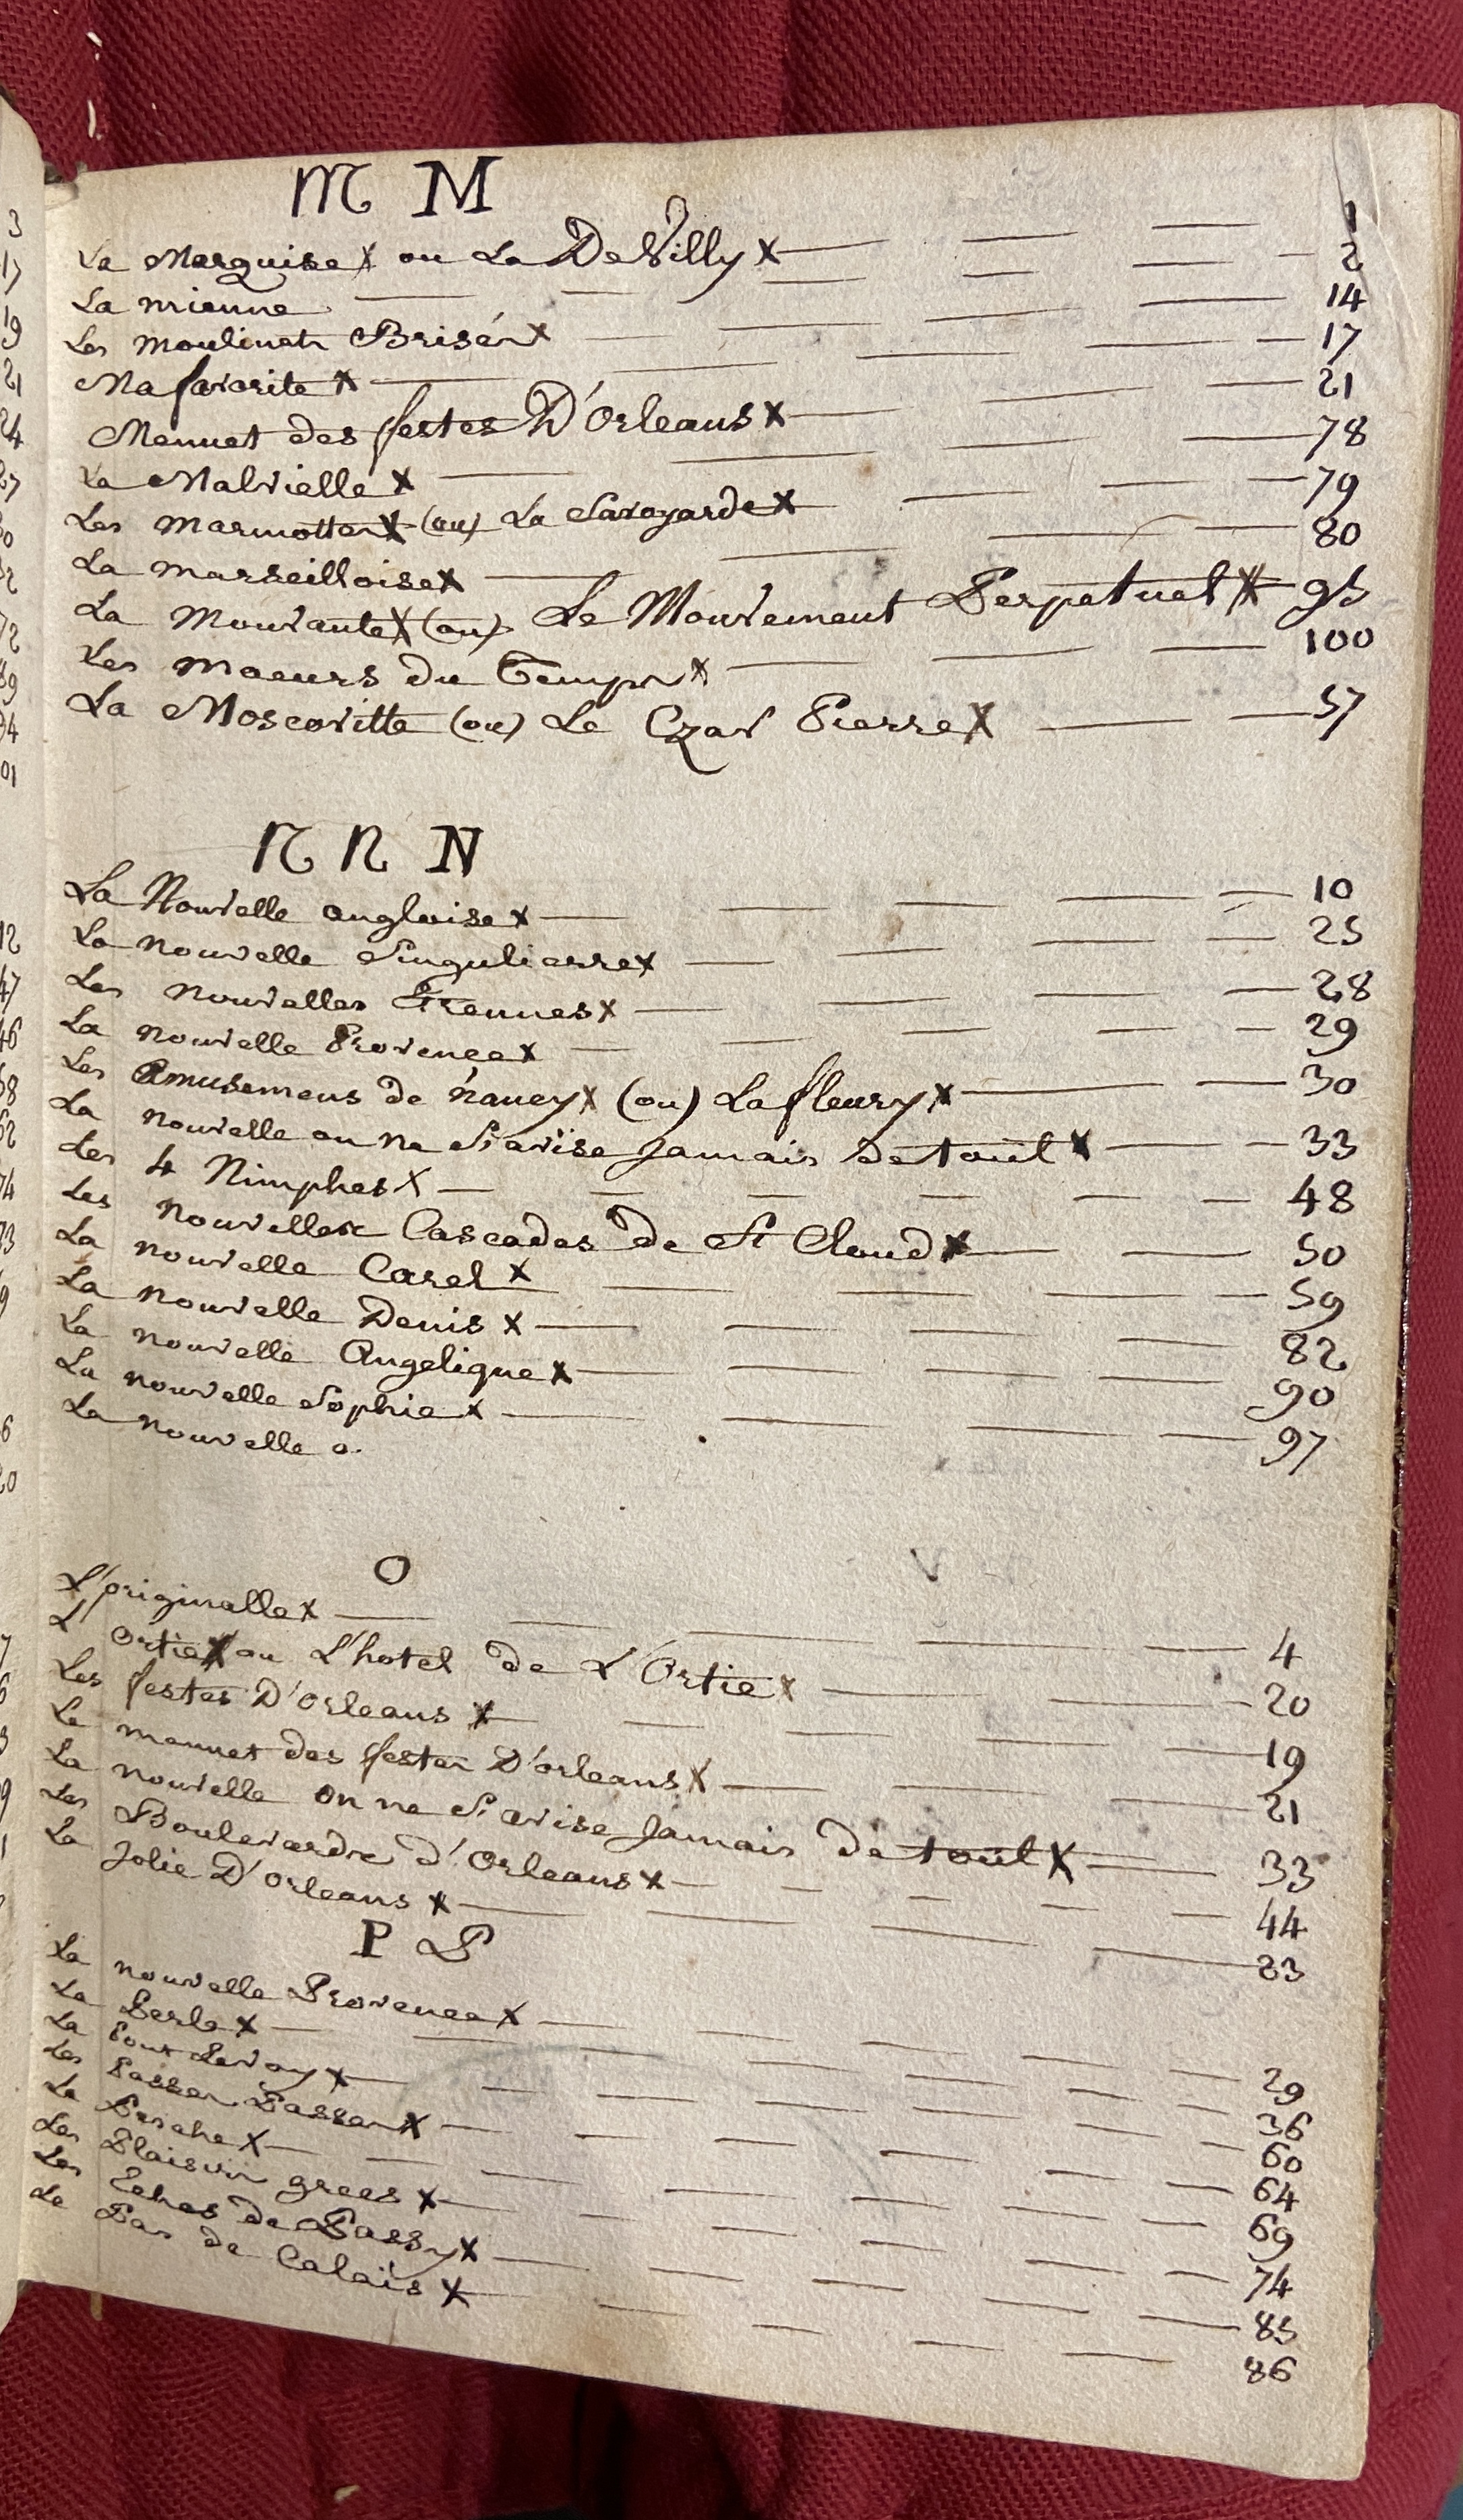 M M
La Marquise X ou La DeVilly X — 1
La mienne — 2
Les moulinets Brisés X — 14
Ma favorite X — 17
Menuet des festes D'Orleans X — 21
La Malvielle X — 78
Les marmottes X (ou) La Savoyarde X — 79
La marseilloise X — 80
La Mouvante X (ou) Le Mouvement Perpetuel X — 95
Les moeurs du Temps X — 100
La Moscovitte (ou) Le Czar Pierre X — 57
N N N
La Nouvelle angloise X — 10
La nouvelle Singulierre X — 25
Les nouvelles Etrennes X — 28
La nouvelle Provence X — 29
Les Amusemens de nancy X (ou) La fleury X — 30
La nouvelle on ne S'avise Jamais de tout X — 33
Les 4 Nimphes X — 48
Les nouvelles Cascades de St Cloud X — 50
La nouvelle Carel X — 59
La nouvelle Denis X — 82
La nouvelle Angelique X — 90
La nouvelle Sophie X — 97
La nouvelle a
O
L'originalle X — 4
L'ortie X ou L'hotel de L'Ortie X — 20
Les festes D'Orleans X — 19
Le menuet des festes D'orleans X — 21
La nouvelle on ne S'avise Jamais de tout X — 33
Les Boulevards d'Orleans X — 44
La Jolie D'orleans X — 83
P P
La nouvelle Provence X — 29
La Perle X — 36
La Pont Levoy X — 60
Les Passes Passes X — 64
La Perche X — 69
Les Plaisirs grecs X — 74
Les Echos de Passy X — 85
Le Pas de Calais X — 86